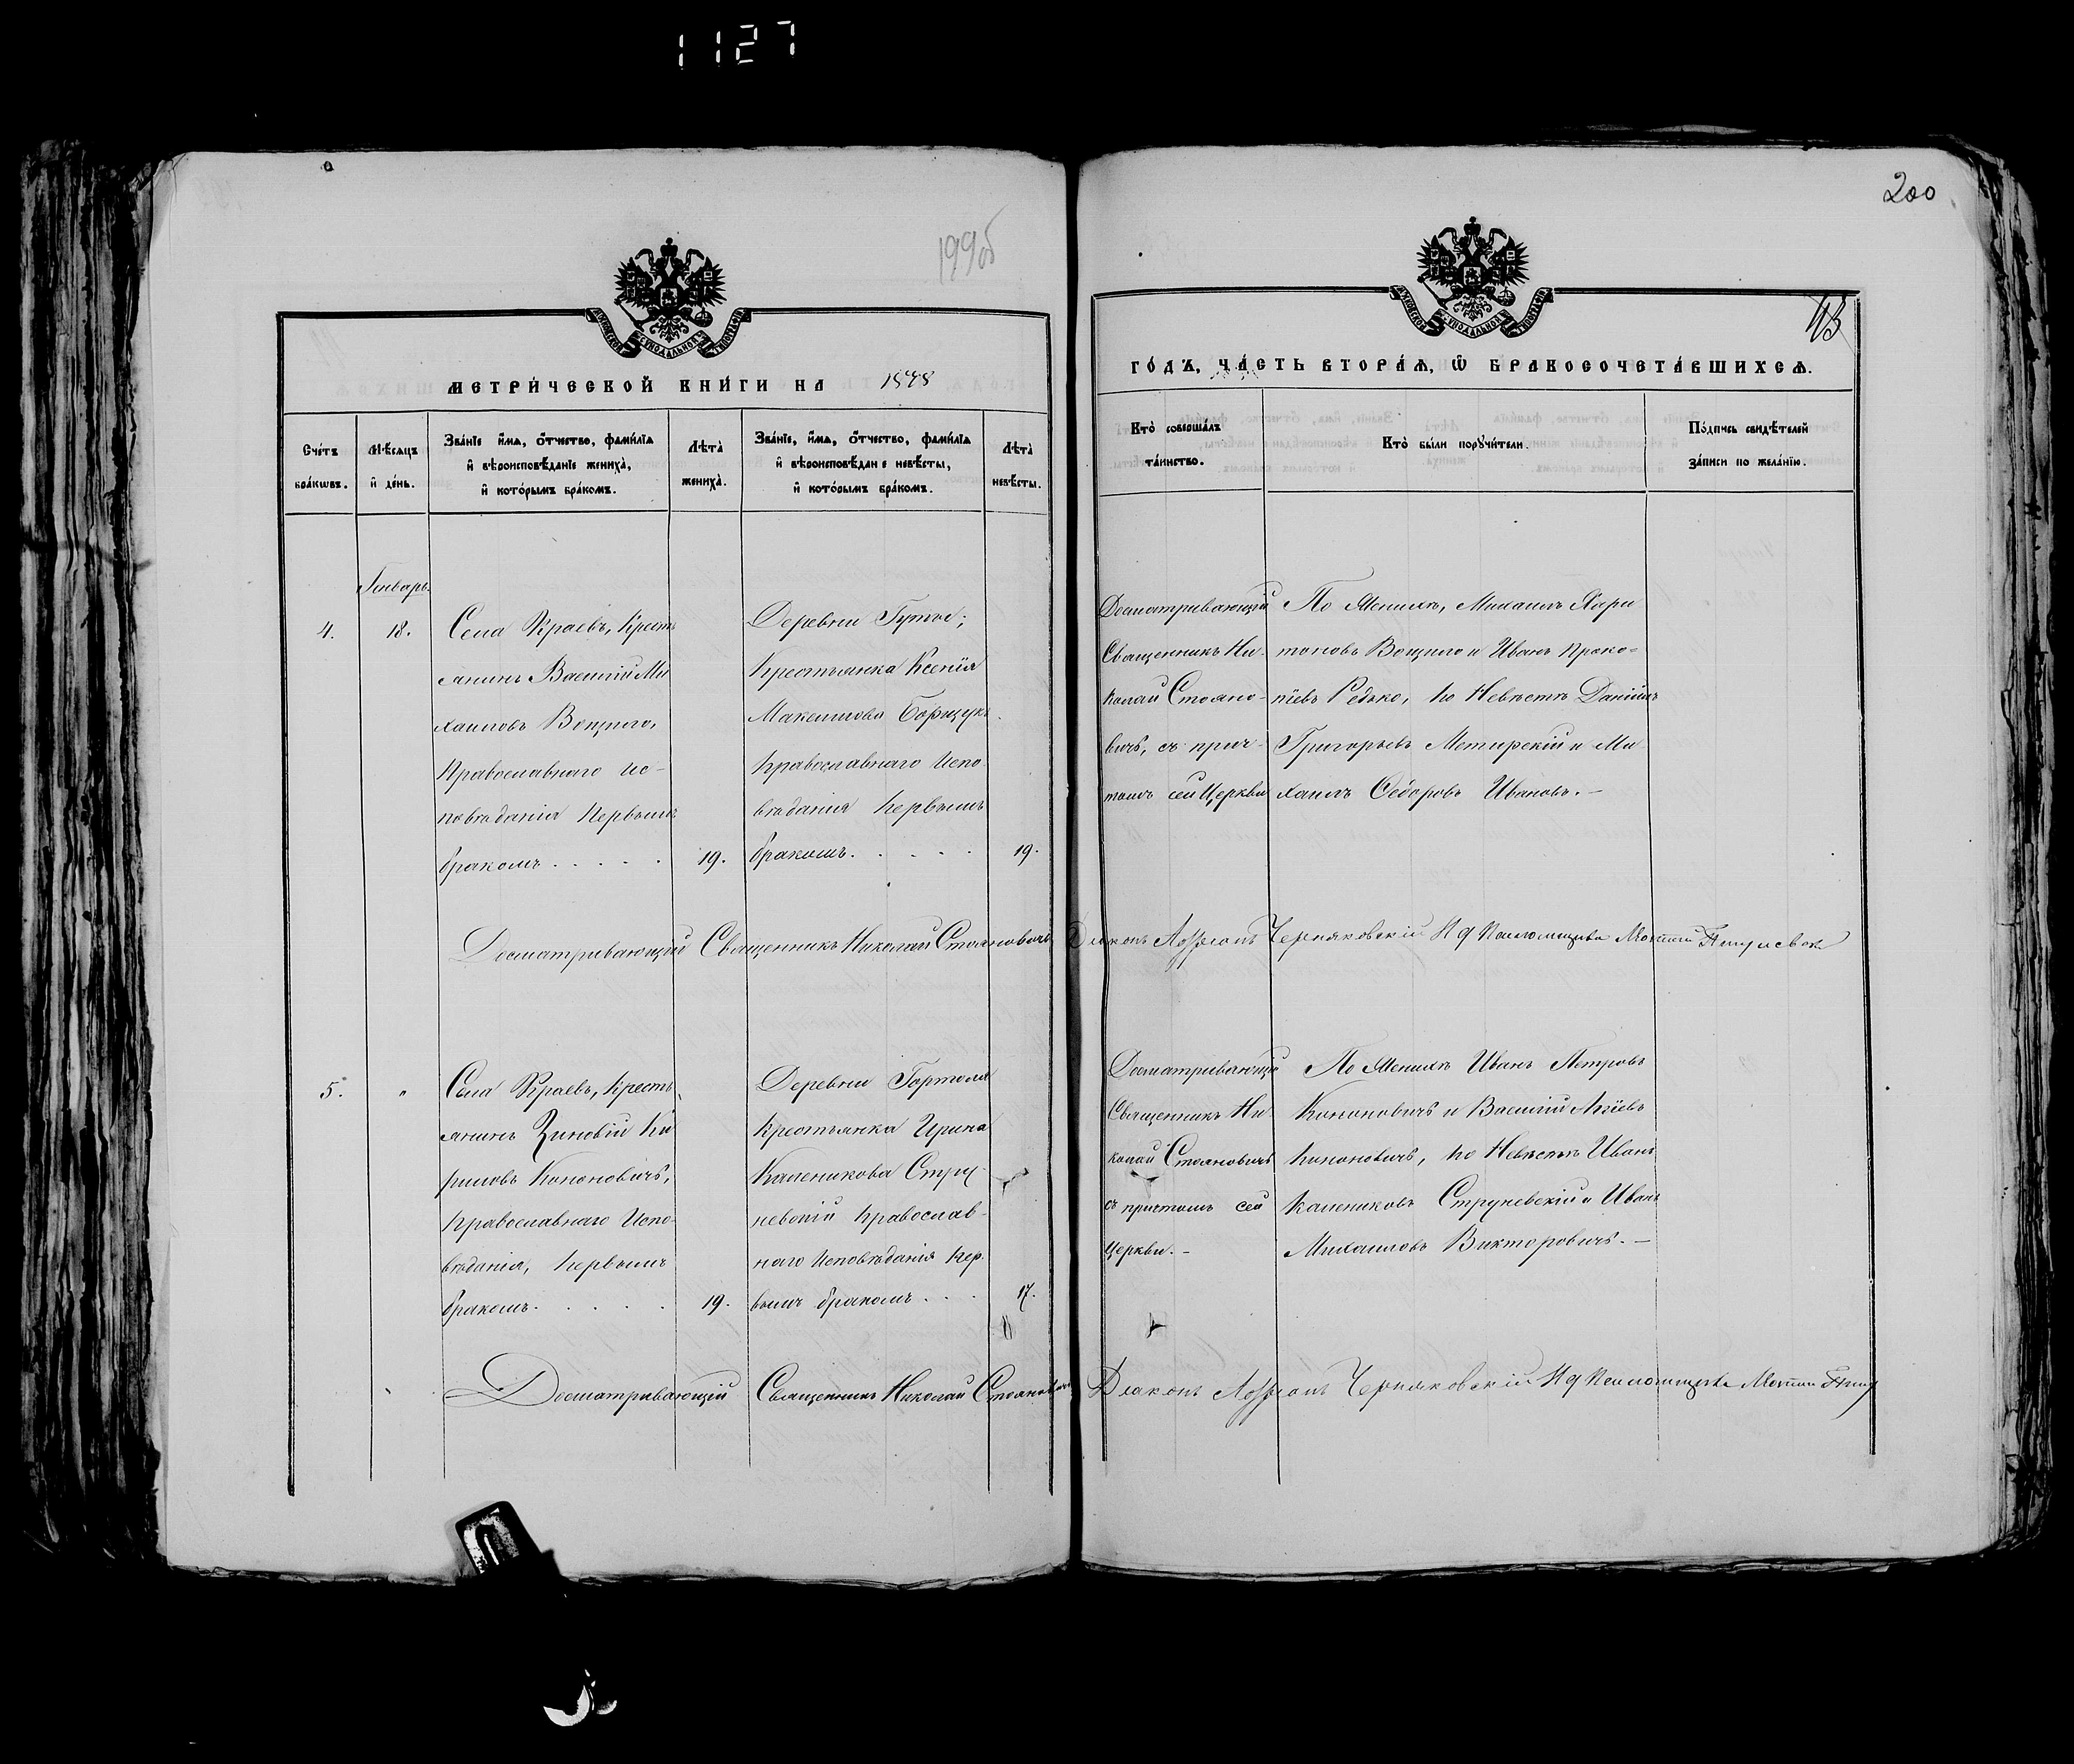 1127
200
199об
113
МЕТРИ́ЧЕСКОЙ КНИ́ГИ НА 1878
ГО́ДЪ, ЧА́СТЬ ВТОРА́Ѧ, Ѽ БРАКОСОЧЕТА́ВШИХСѦ.
Сче́тъ бра́кѡвъ.
Мѣ́сѧцъ и҆ де́нь.
Зва́нїе и҆́мѧ, о҆́тчество, фами́лїѧ
и҆ вѣроисповѣ́данїе жениха̀,
и҆ кото́рымъ бра́комъ.
Лѣ́та жениха̀.
Зва́нїе, и҆́мѧ, о҆́тчество, фами́лїѧ
и҆ вѣроисповѣ́дан е невѣ́сты,
и҆ кото́рымъ бра́комъ.
Лѣ́та невѣ́сты.
Кто̀ соверша́лъ
та́инство.
Кто̀ бы́ли порꙋчи́тели.
По́дпись свидѣ́телей
за́писи по жела́нїю.
Генварь.
4.
18.
Села Краевъ, Кресть
янинъ Василій Ми
хаиловъ Вощило,
Православнаго Ис-
повѣданія Первымъ
бракомъ . . . . .
19.
Деревни Гуты;
Крестьянка Ксенія
Максимова Борщукъ.
Православнаго Испо
вѣданія первымъ
бракомъ. . . . .
19.
Досматривающій
Священникъ Ни-
колай Стояно-
вичъ, съ прич-
томъ сей Церкви
По Женихѣ, Михаилъ Хари
тоновъ Вощило и Иванъ Проко-
піевъ Редько, по Невѣстѣ Даніилъ
Григорьевъ и Ми
хаилъ Ѳедоровъ Ивановъ. —
Досматривающій Священникъ Николай Стояновичъ Діаконъ Черняковскій И д Псаломщика
5.
"
Села Краевъ, Кресть
янинъ Зиновій Ки
риловъ Кононовичъ,
Православнаго Испо-
вѣданія, первымъ
бракомъ. . . . .
19.
Деревни Гортоля
Крестьянка Ирина
Каленикова Стру-
невскій Православ-
наго Исповѣданія пер-
вымъ бракомъ . . .
17.
Досматривающій
Священникъ Ни
колай Стояновичъ
съ причтомъ сей
Церкви. —
По Женихѣ Иванъ Петровъ
Кононовичъ и Василій
Кононовичъ, по Невѣстѣ Иванъ
Калениковъ Струневскій и Иванъ
Михаиловъ Викторовичъ. —
Досматривающій Священникъ Николай Стояновичъ Діаконъ Черняковскій И д Псаломщика